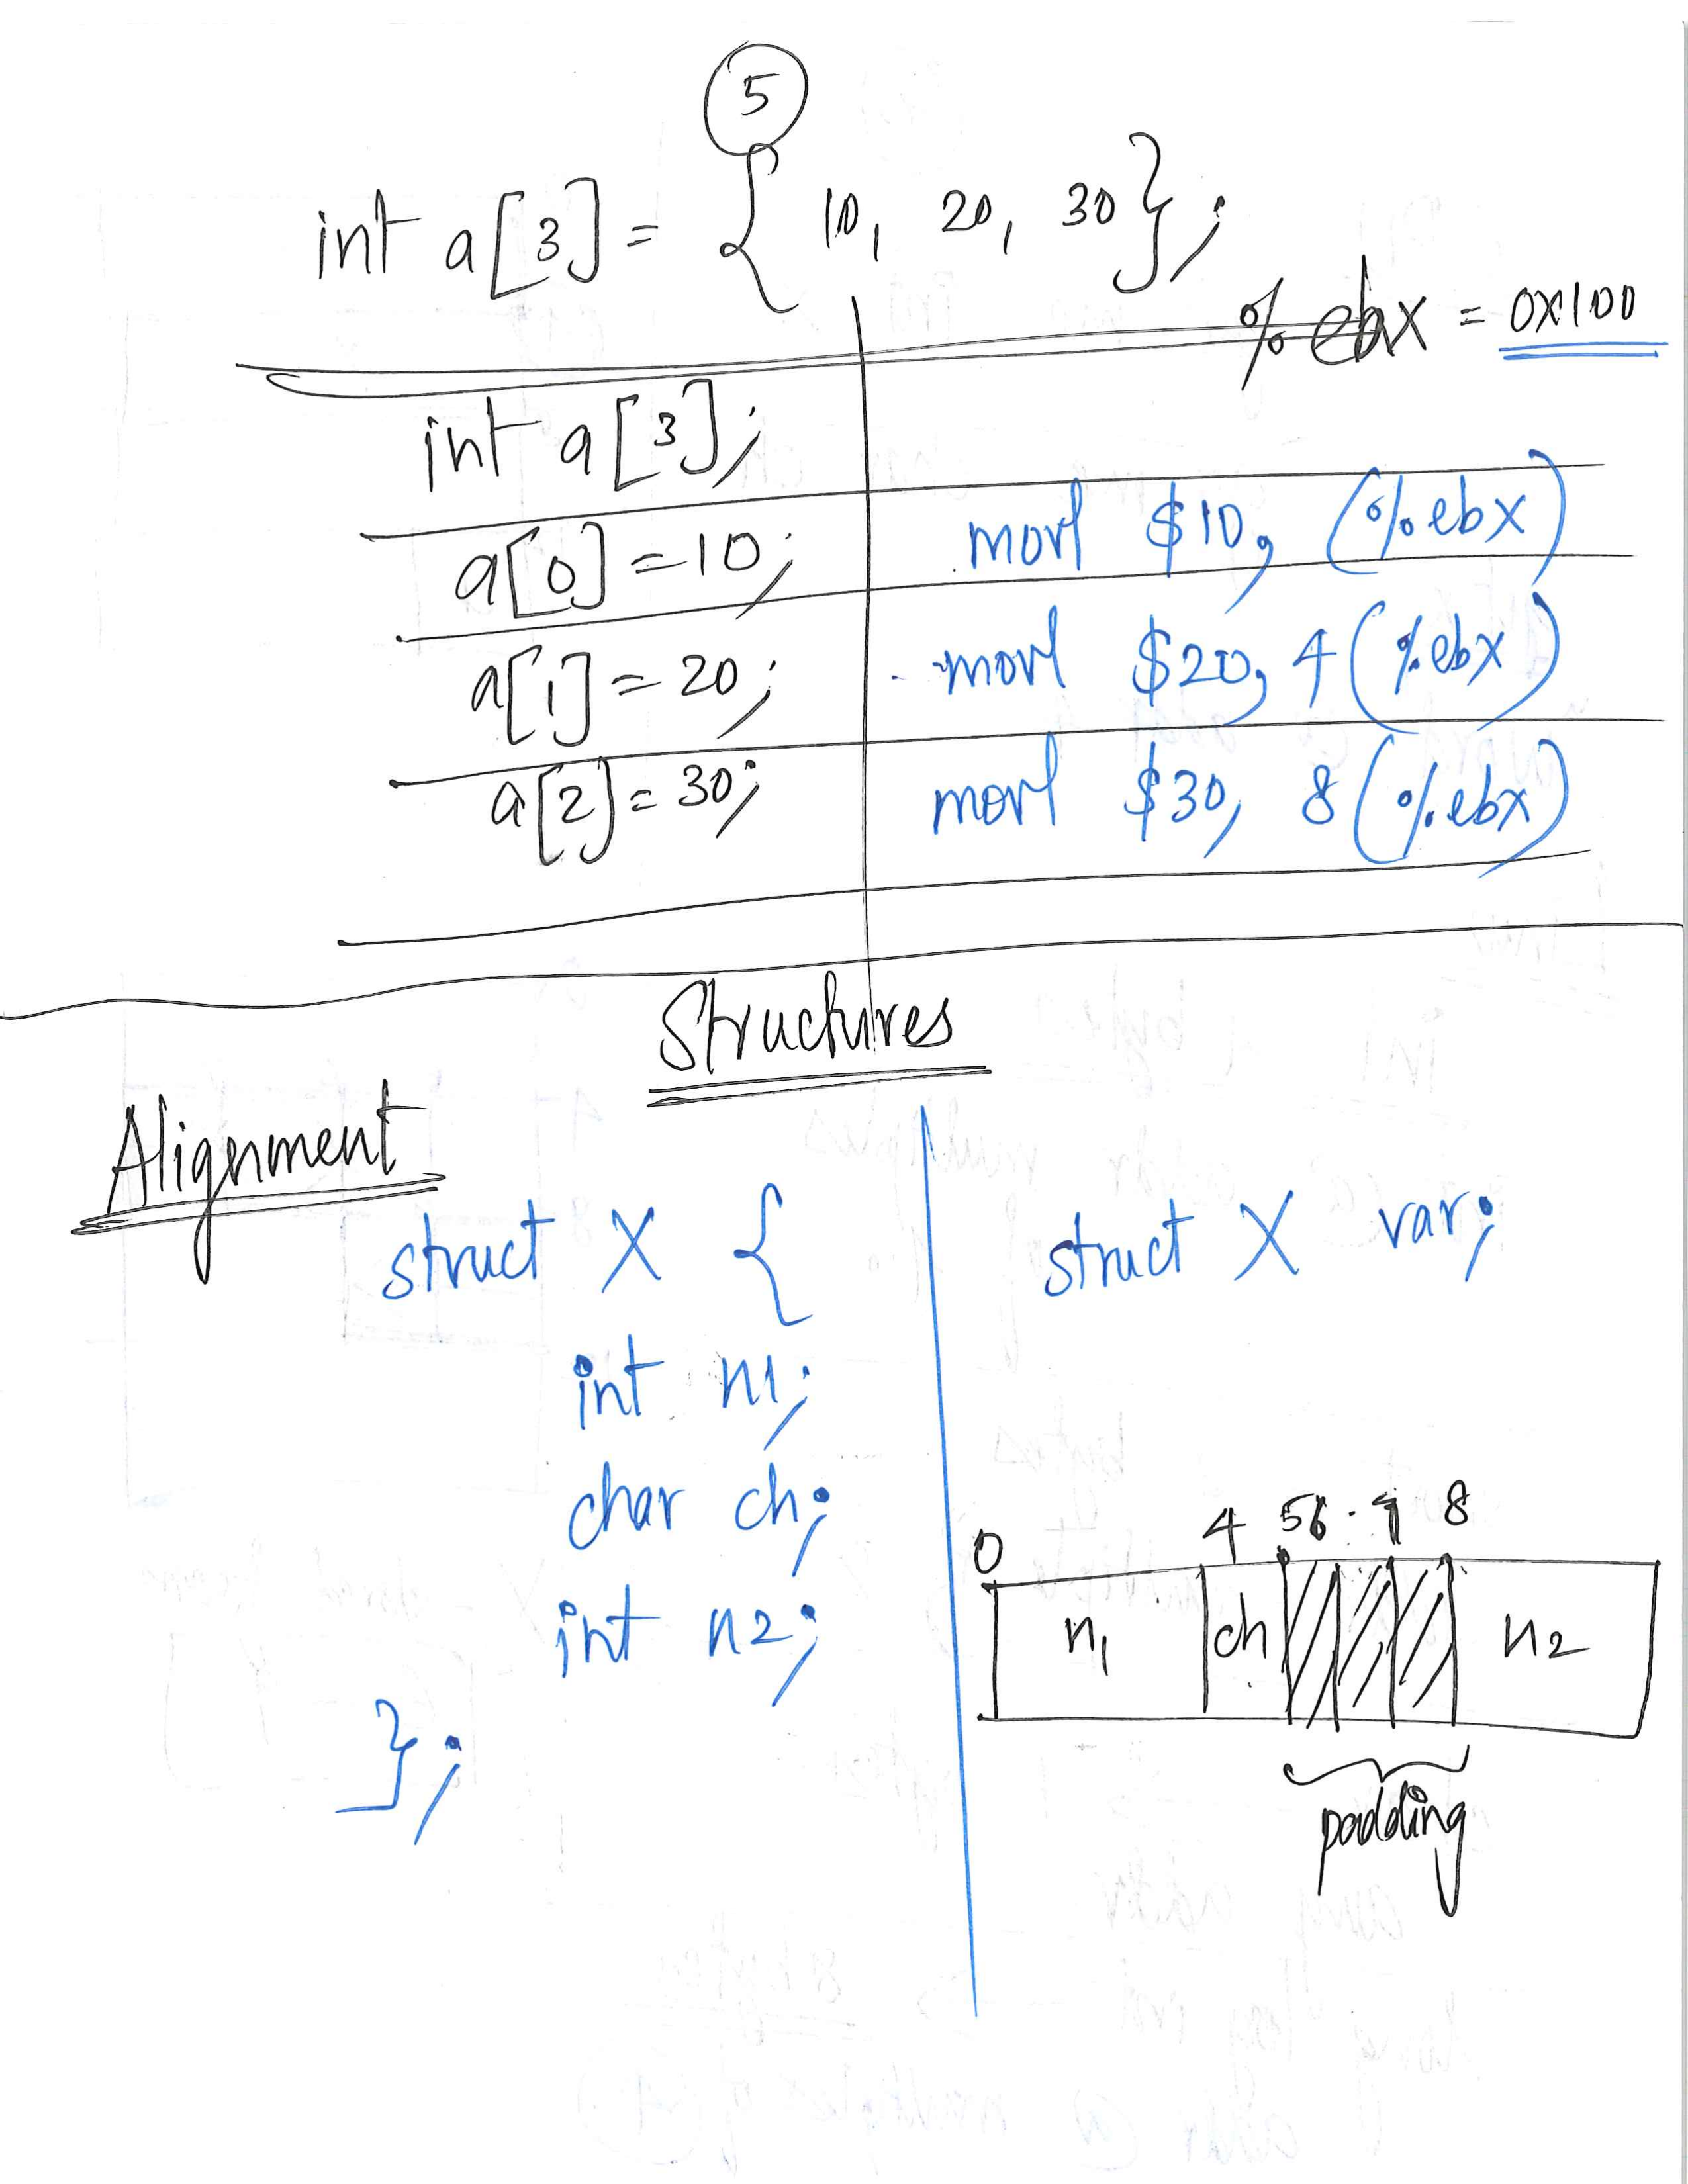 5
int a[3] = { 10, 20, 30};
%ebx = 0x100
int a[3];
a[0] = 10; movl $10, (%ebx)
a[1] = 20; movl $20, 4(%ebx)
a[2] = 30; movl $30, 8(%ebx)
Structures
Alignment
struct X {
int n1;
char ch;
int n2;
};
struct X var;
0 4 5 6 7 8
n1 ch n2
padding